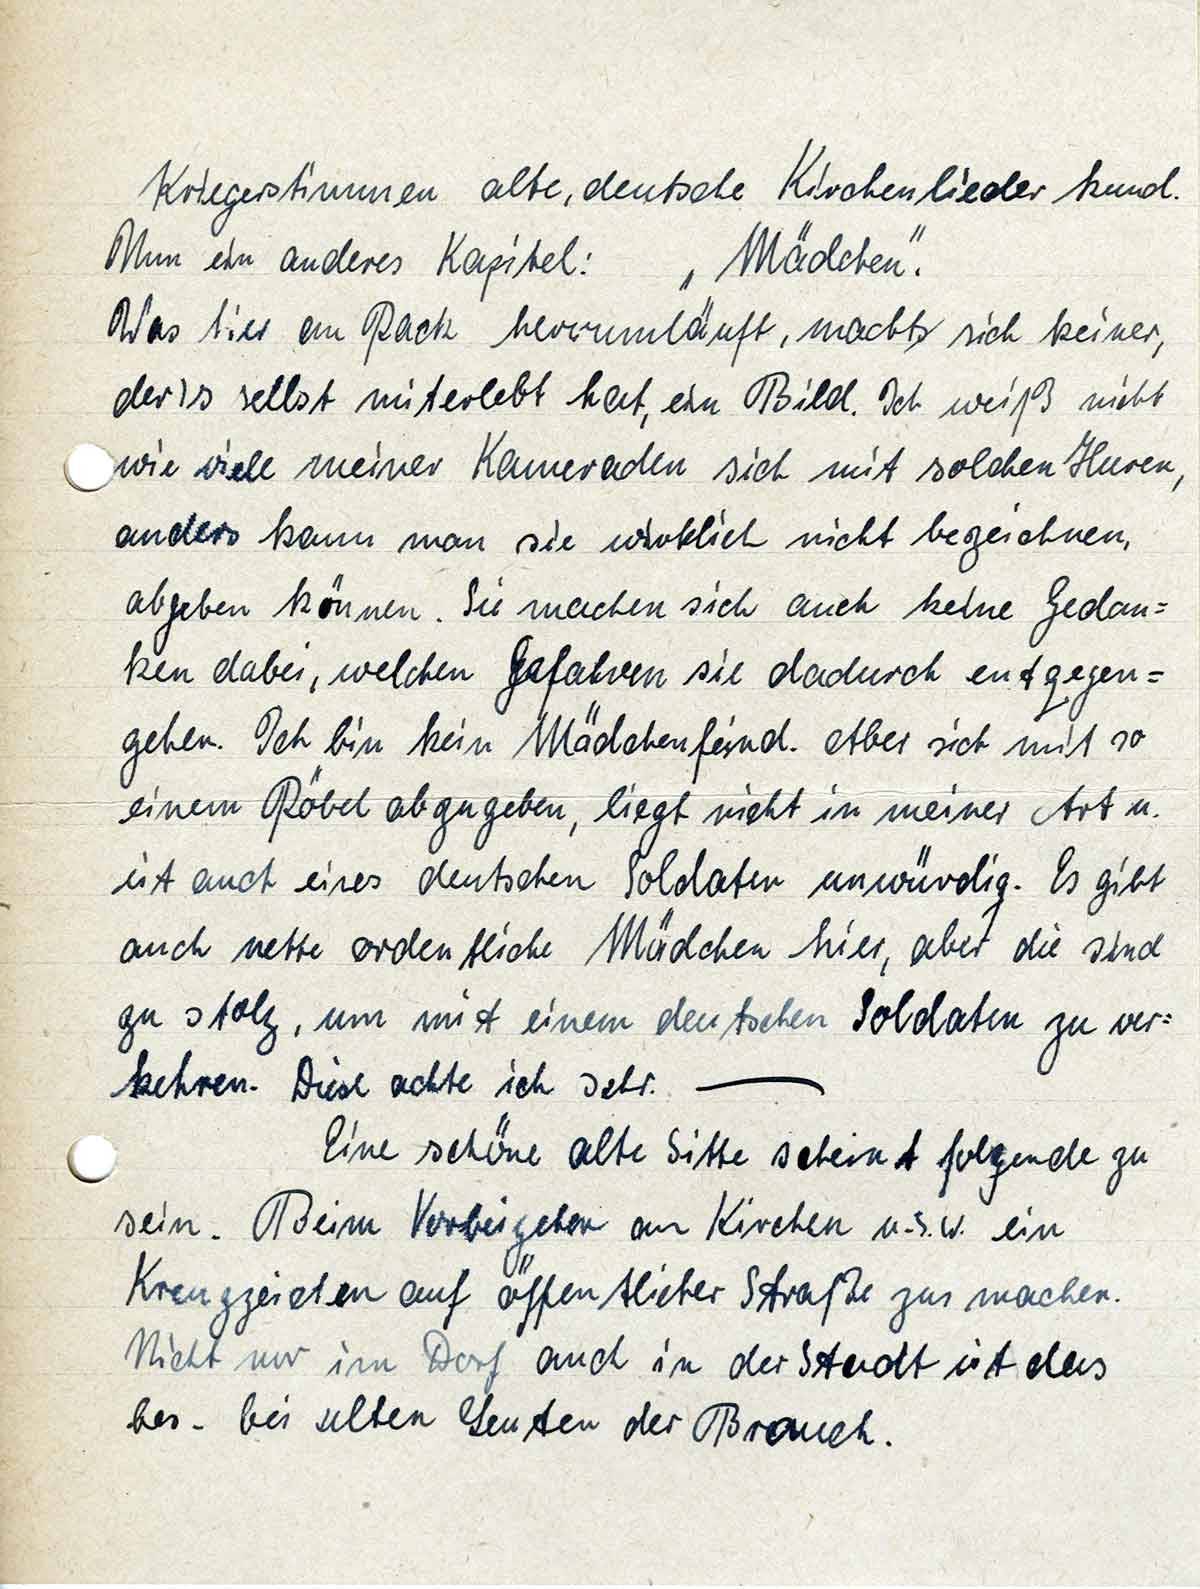 Kriegerstimmen alte, deutsche Kirchenlieder kund.
Nun ein anderes Kapitel: „Mädchen".
Was hier an Pack herrumläuft, macht sich keiner,
der's selbst miterlebt hat, ein Bild. Ich weiß nicht
wie viele meiner Kameraden sich mit solchen Huren,
anders kann man sie wirklich nicht bezeichnen,
abgeben können. Sie machen sich auch keine Gedan=
ken dabei, welchen Gefahren sie dadurch entgegen=
gehen. Ich bin kein Mädchenfeind. Aber sich mit so
einem Pöbel abzugeben, liegt nicht in meiner Art u.
ist auch eines deutschen Soldaten unwürdig. Es gibt
auch nette ordentliche Mädchen hier, aber die sind
zu stolz, um mit einem deutschen Soldaten zu ver=
kehren. Diese achte ich sehr. —
Eine schöne alte Sitte scheint folgende zu
sein. Beim Vorbeigehen an Kirchen u.s.w. ein
Kreuzzeichen auf öffentlicher Straße zu machen.
Nicht nur im Dorf auch in der Stadt ist das
bes. bei alten Leuten der Brauch.